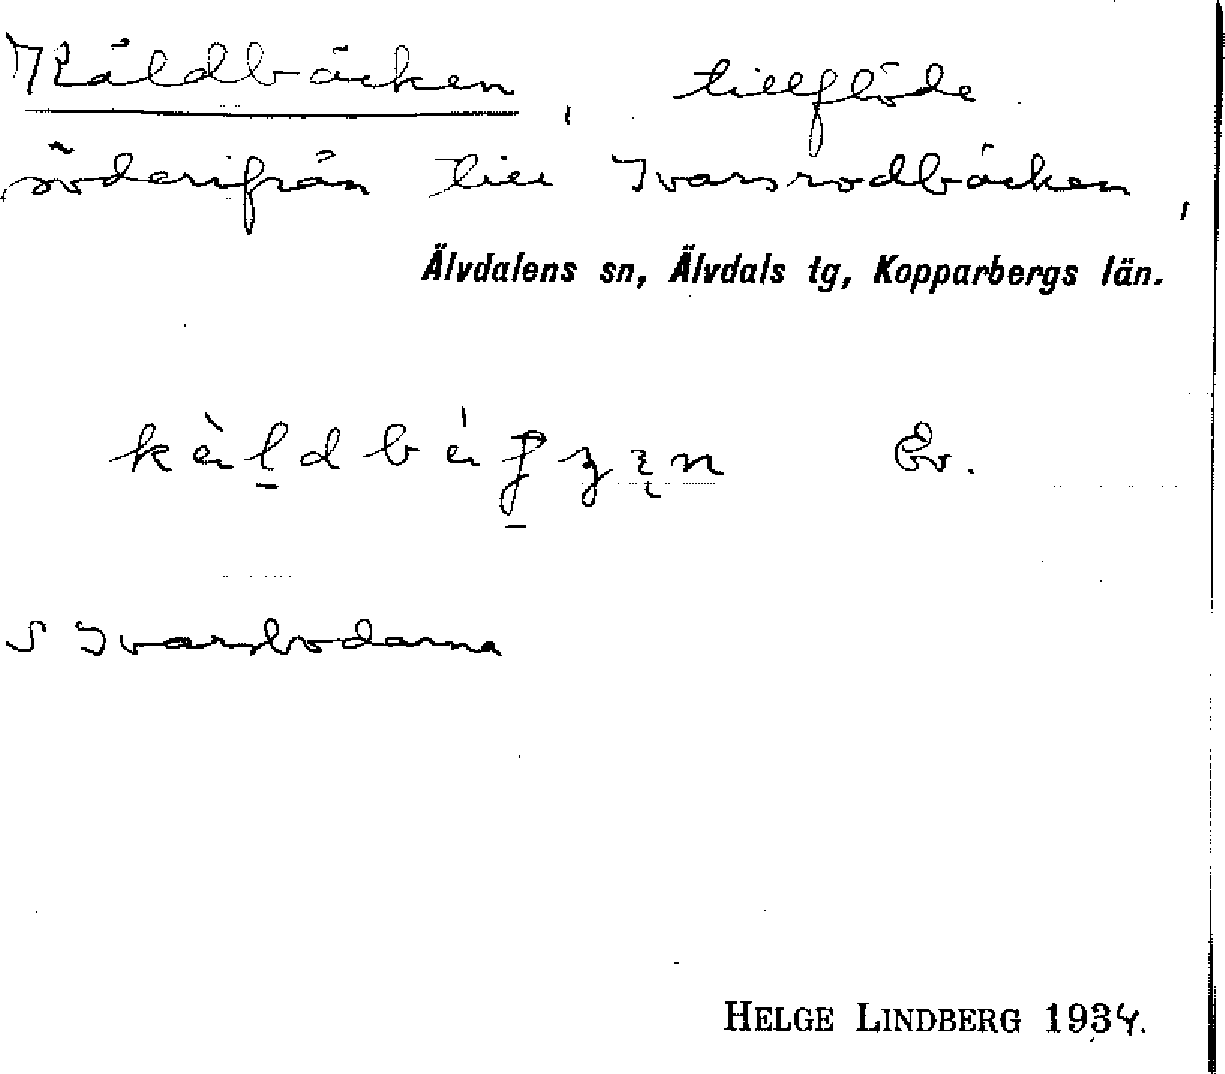 Käldbäcken, tillflöde
söderifrån till Ivarsrodbäcken,
Älvdalens sn, Älvdals tg, Kopparbergs län.
Ev.
S Ivarsbodarna
HELGE LINDBERG 1934.